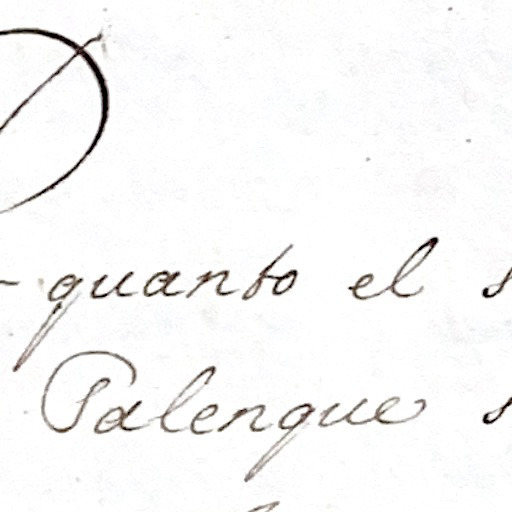 quanto el s
Palenque s